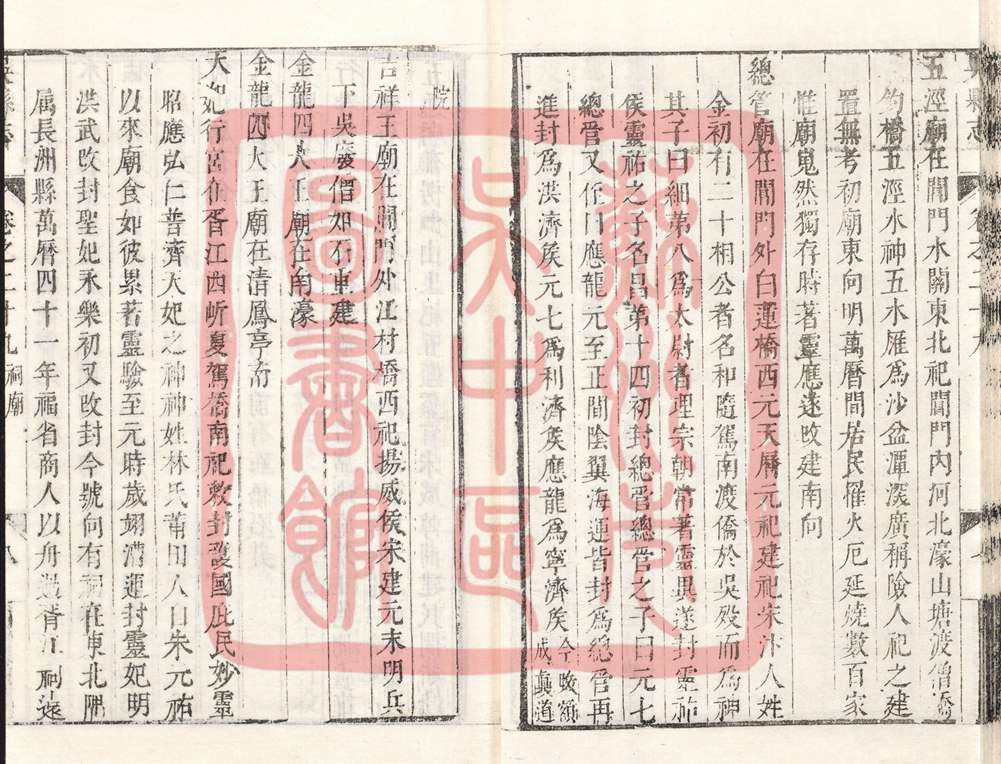 五涇廟在閶門水關東北祀閶門內河北濠山塘渡僧橋
釣橋五涇水神五水匯為沙盆潭深廣稱險人祀之建
置無考初廟東向明萬曆間居民罹火厄延燒數百家
惟廟嵬然獨存時著靈應遂改建南向
總管廟在閶門外白蓮橋西元天曆元祀建祀宋汴人姓
金初有二十相公者名和隨駕南渡僑於吳歿而為神
其子曰細第八為太尉者理宗朝常著靈異遂封靈祐
侯靈祐之子名昌第十四初封總管總管之子曰元七
總管又有曰應龍元至正間陰翼海運皆封為總管再
進封為洪濟侯元七為利濟侯應龍為寧濟侯今敕額
成真道
院
吉祥王廟在閶門外江村橋西祀揚威侯宋建元末明兵
下吳廢僧如石重建
金龍四大王廟在南濠
金龍四大王廟在清鳳亭前
天妃行宮在胥江西岍夏駕橋南祀敕封護國庇民妙靈
昭應弘仁普濟天妃之神神姓林氏莆田人曰宋元祐
以來廟食如彼累著靈驗至元時歲翊漕運封靈妃明
洪武改封聖妃永樂初又改封今號向有祠在東北隅
属長洲縣萬曆四十一年福省商人以舟過胥江祠遠
吳縣志 卷之二十九 祠廟
蘇州美
術中區
圖書館